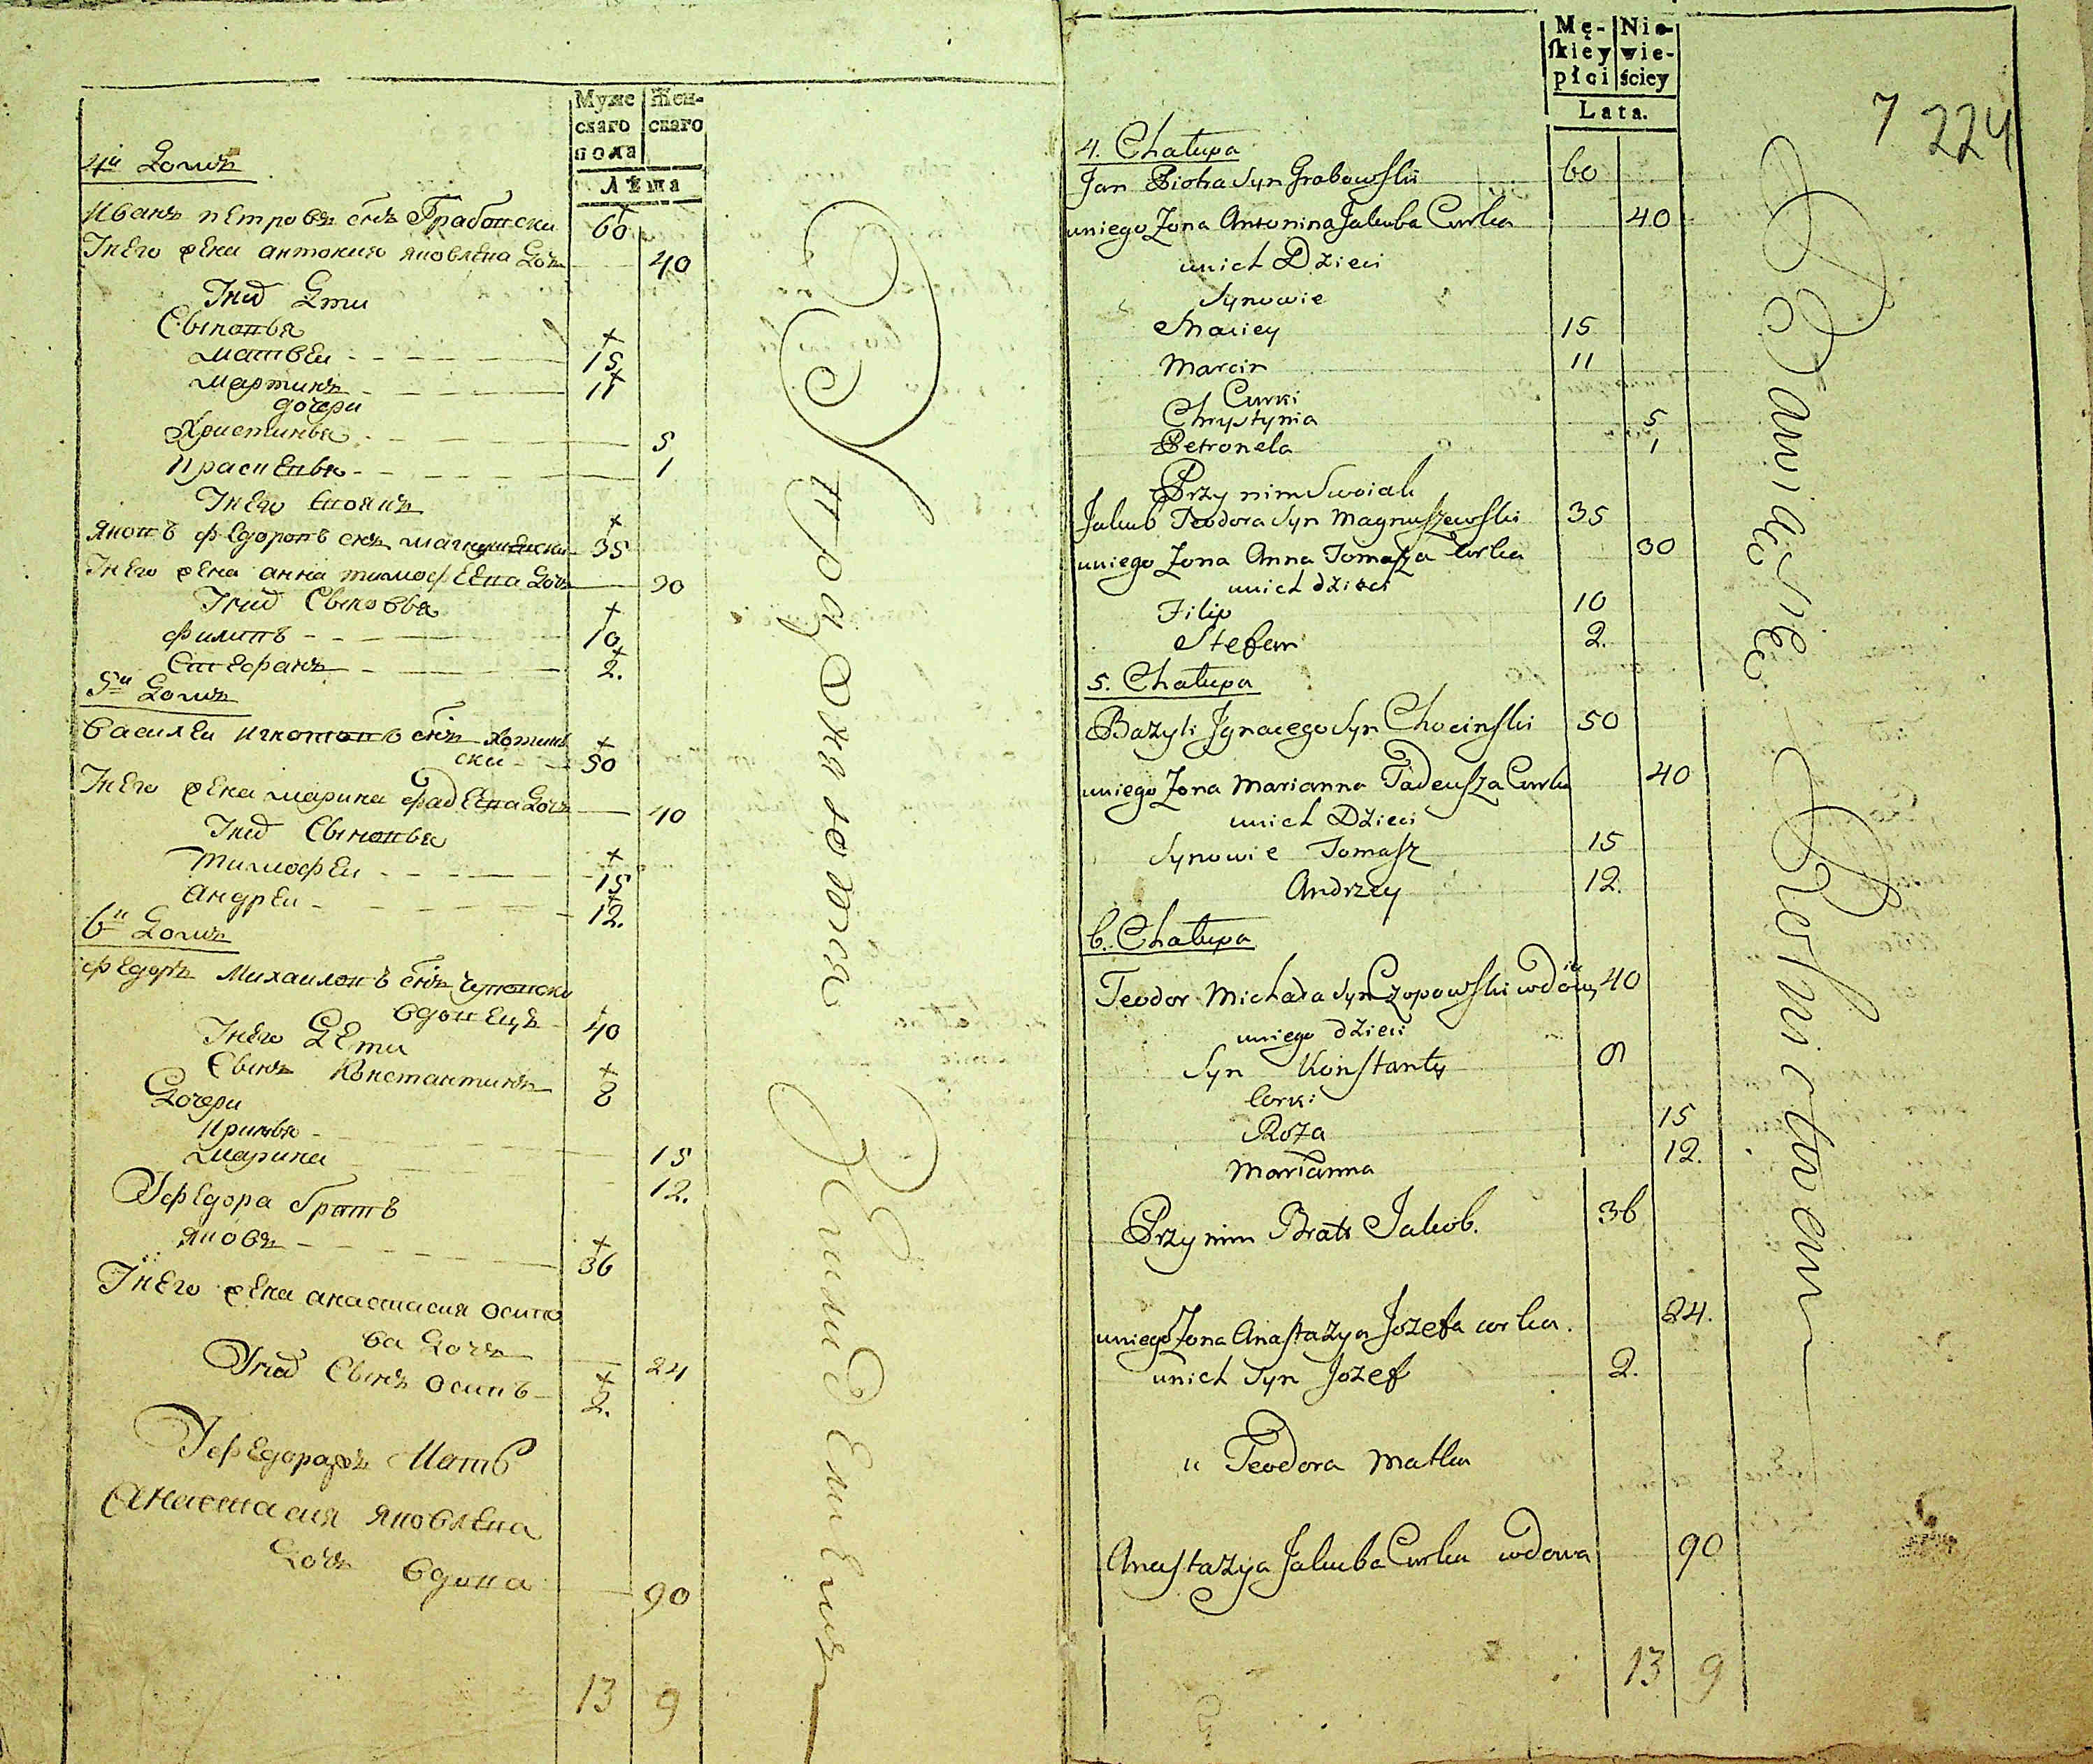 Муже
скаго
пола
Жен-
скаго
Лѣта
4й Домъ
Иванъ Петровъ снъ Грабовски 60
Унего жена антонина яковлена Дочъ 40
Унихъ Дети
Сыновья
Матвеи 15
Мартинъ 11
дочери
Христинья 5
Праскевья 1
Унего своякъ
Яковъ Федоровъ снъ магнушевски 35
Унего жена анна тимофеена Дочъ 30
Унихъ Сыновья
Филипъ 10
Стефанъ 2.
5й Домъ
Василеи Игнатовъ снъ Хотин
ски 50
Унего жена марина фадеена Дочъ 40
Унихъ Сыновья
Тимофеи 15
Андреи 12.
6й Домъ
Федоръ Михаиловъ снъ Чуповски
вдовецъ 40
Унего Дети
Сынъ Константинъ 8
Дочери
Иринья 15
Марина 12.
Уфедора братъ
Яковъ 36
Унего жена анастасия осипо
ва Дочъ 24
Унихъ Сынъ осипъ 2.
Уфедора Мать
Анастасия яковлена
Дочъ вдова 90
13 9
Упражняются
Земледелиемъ
Mę-
skiey
płci
Nie-
wie-
ściey
Lata.
7 224
4. Chałupa
Jan Piotra Syn Grabowski 60
uniego Zona Antonina Jakuba Curka 40
unich Dzieci
Synowie
Maciey 15
Marcin 11
Curki
Chrystynia 5
Petronela 1
Przy nim Swoiak
Jakub Teodora Syn Magnuszewski 35
uniego Zona Anna Tomasza Curka 30
unich dzieci
Filip 10
Stefan 2.
5. Chałupa
Bazyli Jgnacego Syn Chocinski 50
uniego Zona Marianna Tadeusza Curka 40
unich Dzieci
Synowie Tomasz 15
Andrzey 12.
6. Chałupa
Teodor Michała Syn Czopowski wdowiec 40
uniego dzieci
Syn Konstanty 8
Corki
Roza 15
Marianna 12.
Przy nim Brat Jakob. 36
uniego Zona Anastazya Jozefa corka. 24.
unich Syn Jozef 2.
u Teodora Matka
Anastazya Jakuba Curka wdowa 90
13 9
Bawią się
Rolnictwem